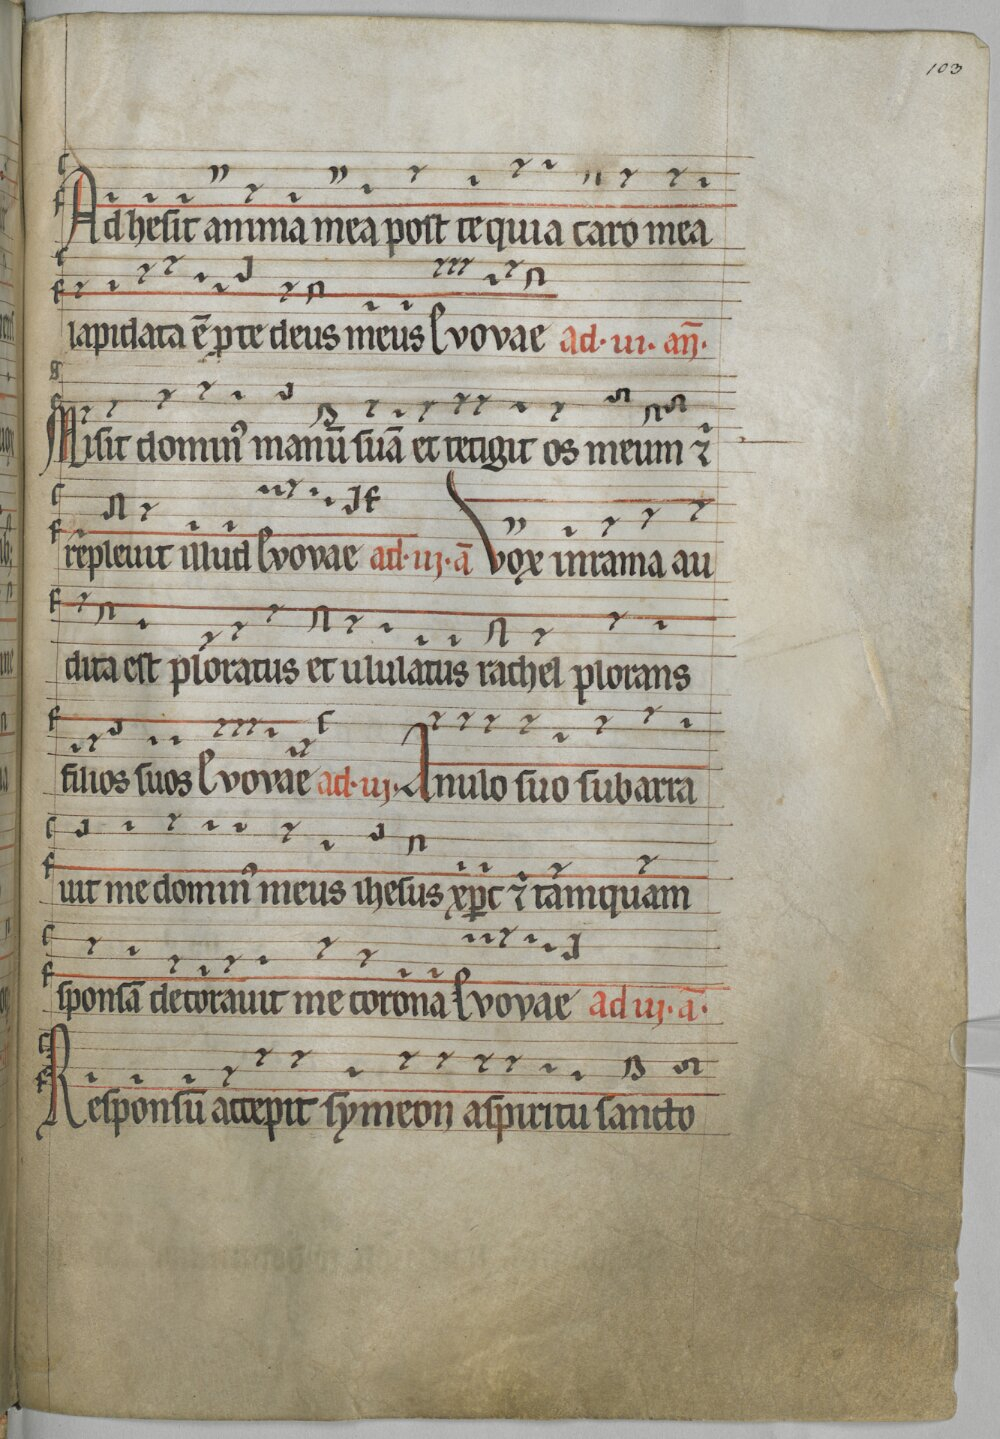 103
Adhesit anima mea post te quia caro mea
lapidata ē ꝑ te deus meus Evovae ad·iii·an̄·
Misit dominꝰ manū suā et tetigit os meum ⁊
repleuit illud Evovae ad·iij·ā Vox in rama au
dita est ploratus et ululatus rachel plorans
filios suos Evovae ad·iij· Anulo suo subarra
uit me dominꝰ meus ihesus xp̄c ⁊ tamquam
sponsā decorauit me corona Evovae ad iij·ā·
Responsū accepit symeon a spiritu sancto